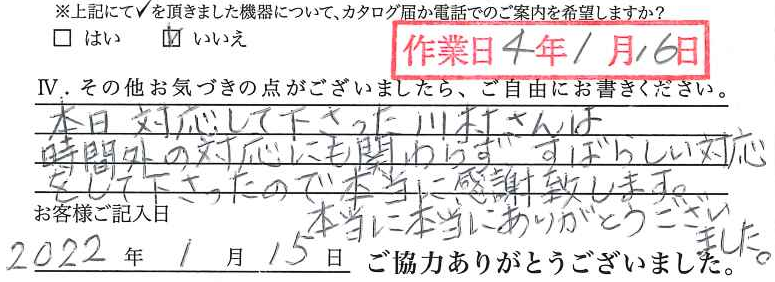 ※上記にて✓を頂きました機器について、カタログ届か電話でのご案内を希望しますか?
□ はい ☑ いいえ
作業日 4年1月16日
Ⅳ．その他お気づきの点がございましたら、ご自由にお書きください。
本日 対応して下さった川村さんは
時間外の対応にも関わらず すばらしい対応
をして下さったので本当に感謝致します。
本当に本当にありがとうござい
ました。
お客様ご記入日
2022年1月15日 ご協力ありがとうございました。